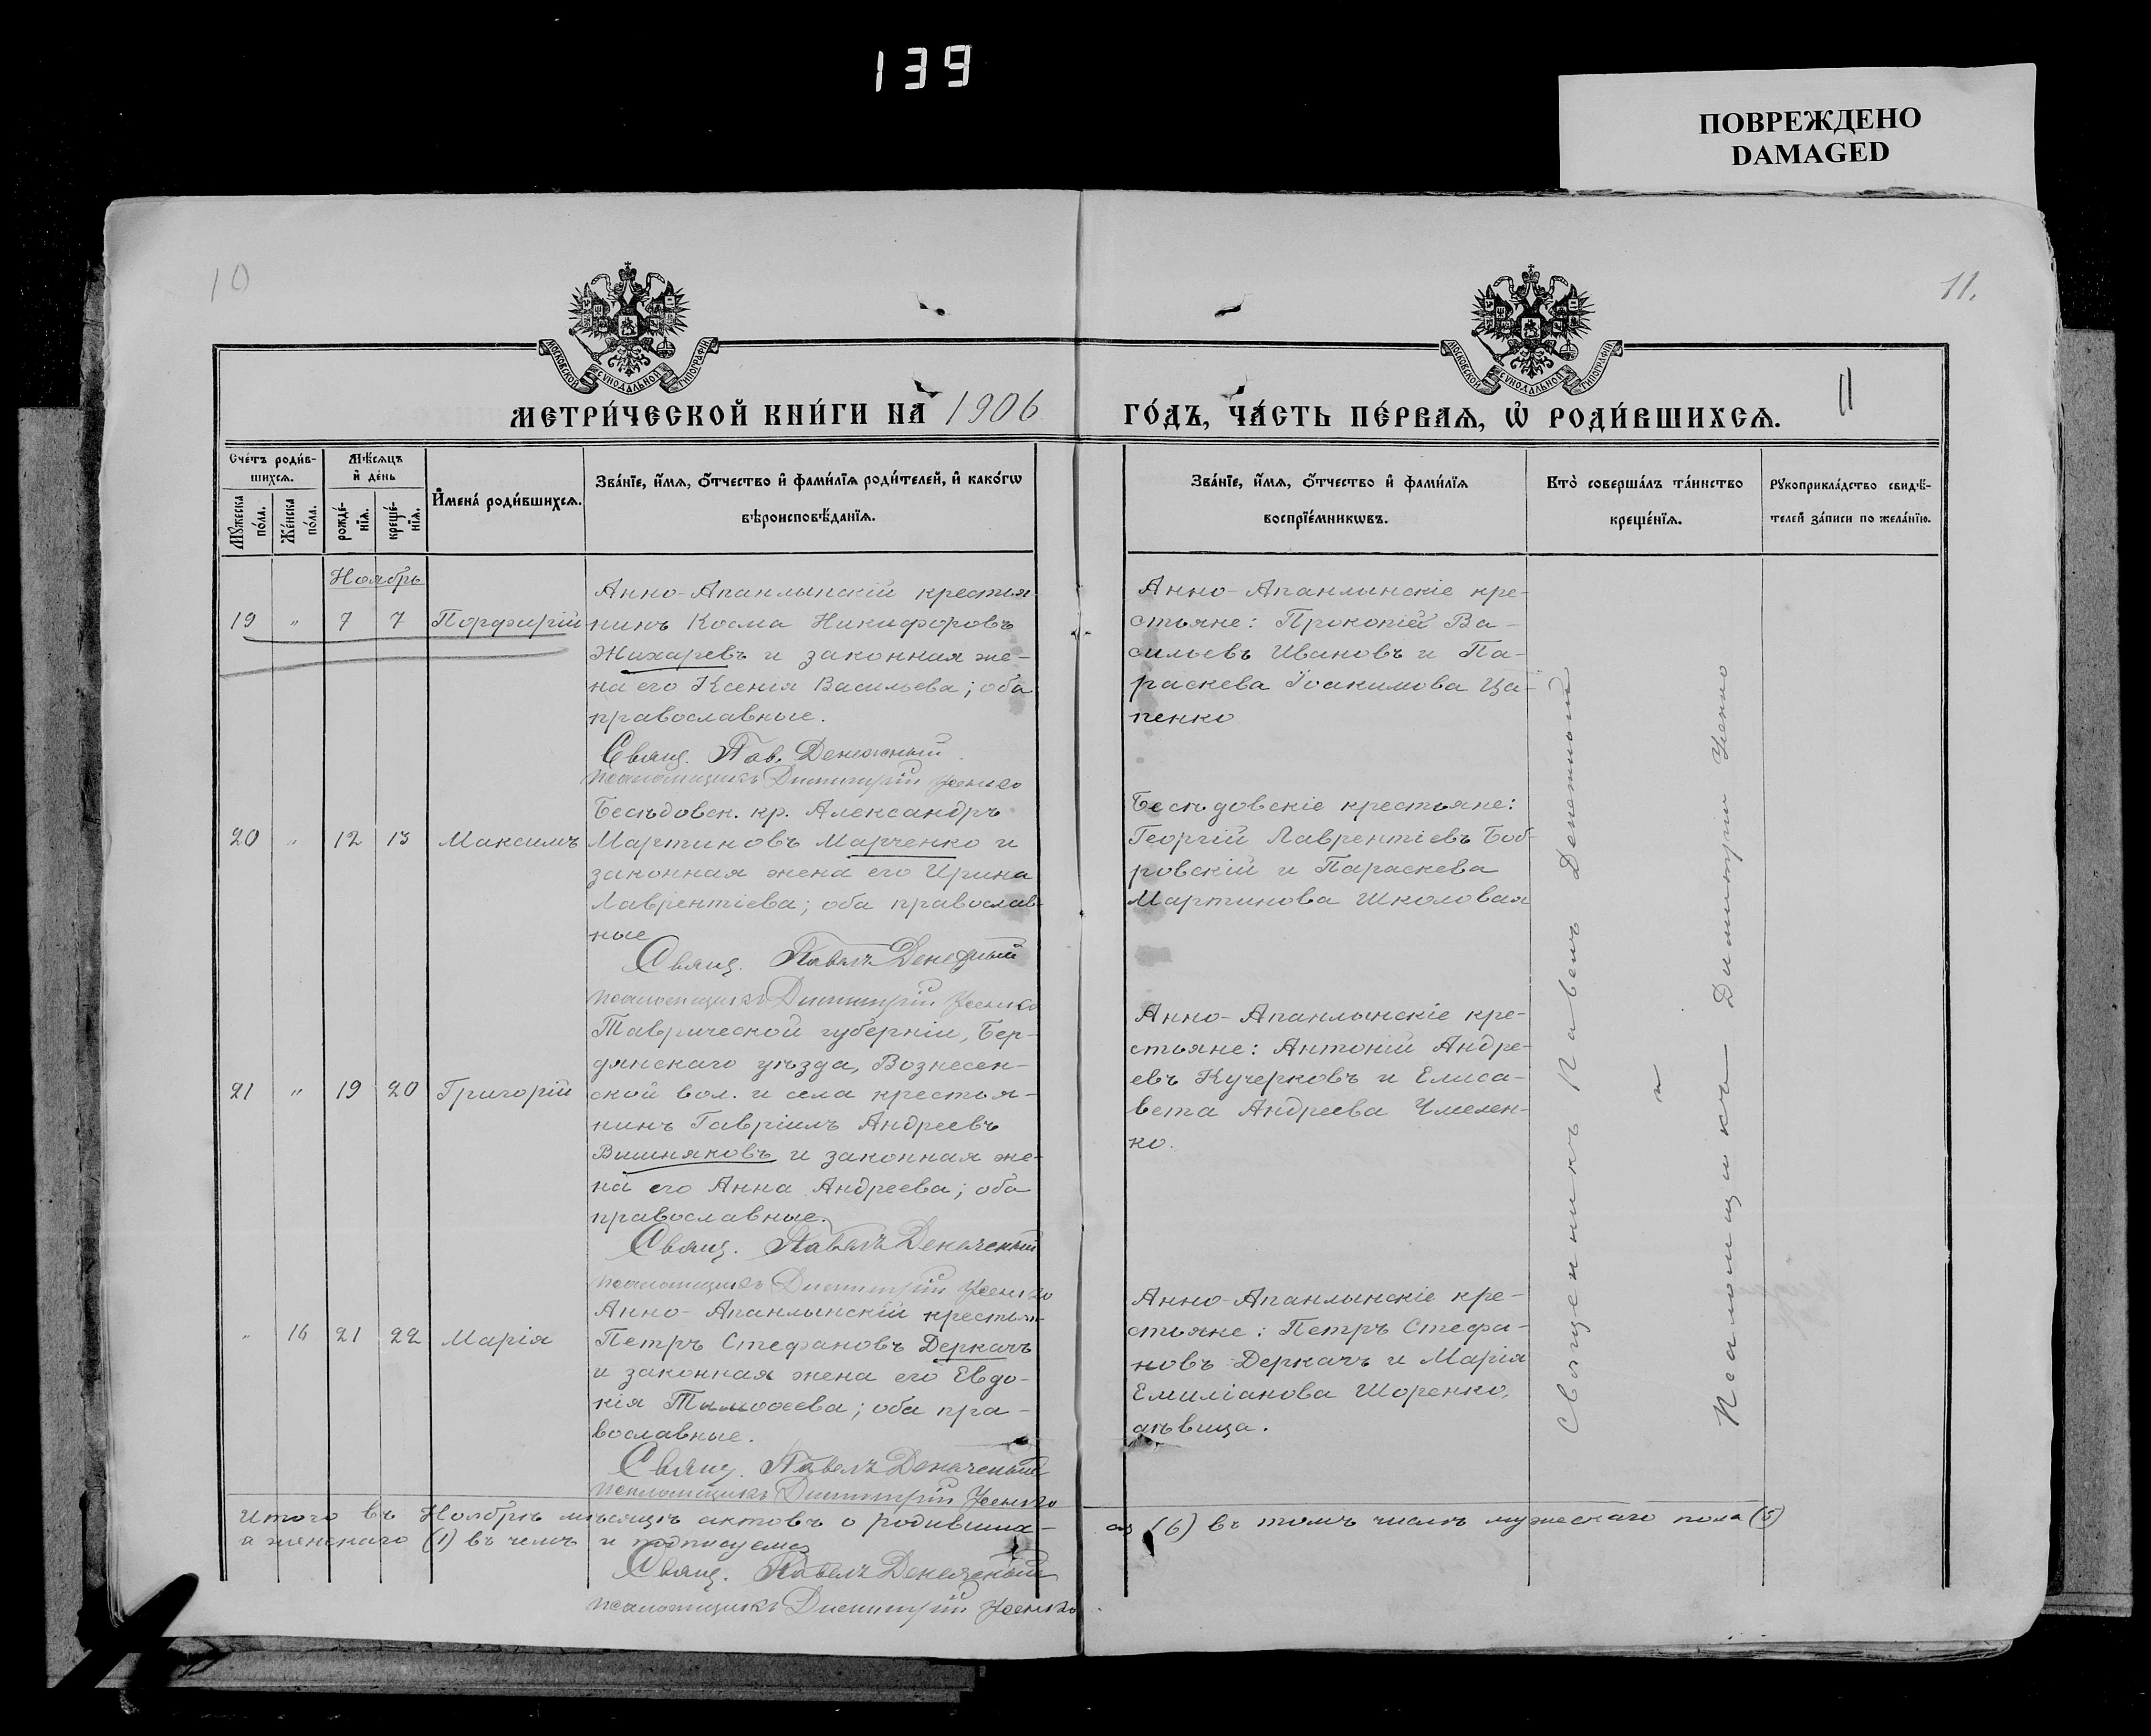 139
ПОВРЕЖДЕНО
DAMAGED
10
11.
11
МОСКОВСКОЙ СѴНОДАЛЬНОЙ ТИПОГРАФІИ
МОСКОВСКОЙ СѴНОДАЛЬНОЙ ТИПОГРАФІИ
МЕТРИ́ЧЕСКОЙ КНИ́ГИ НА 1906
ГО́ДЪ, ЧА́СТЬ ПЕ́РВАѦ, Ѡ҆ РОДИ́ВШИХСѦ.
Сче́тъ роди́в-
шихсѧ.
Мѣ́сѧцъ
и҆ де́нь
Мꙋ́жеска
по́ла.
Же́нска
по́ла.
рожде́-
нїѧ.
креще́-
нїѧ.
И҆мена̀ роди́вшихсѧ.
Зва́нїе, и҆́мѧ, ѻ҆́тчество и҆ фами́лїѧ роди́телей, и҆ како́гѡ
вѣроисповѣ́данїѧ.
Зва́нїе, и҆́мѧ, ѻ҆́тчество и҆ фами́лїѧ
воспрїе́мникѡвъ.
Кто̀ соверша́лъ та́инство
креще́нїѧ.
Рꙋкоприкла́дство свидѣ́-
телей за́писи по жела́нїю.
Ноябрь
19 " 7 7 Порфирій
Анно-Апанлынскій крестья
нинъ Косма Никифоровъ
Жихаревъ и законная же-
на его Ксенія Васильева; оба
православные.
Свящ. Пав. Денежный
псаломщикъ Димитрій Усенко
Анно-Апанлынскіе кре-
стьяне: Прокопій Ва-
сильевъ Ивановъ и Па-
раскева Іоакимова Ца-
пенко
20 " 12 13 Максимъ
Бесѣдовск. кр. Александръ
Мартиновъ Марченко и
законная жена его Ирина
Лаврентіева; оба православ-
ные
Свящ. Павелъ Денежный
псаломщикъ Димитрій Усенко
Бесѣдовскіе крестьяне:
Георгій Лаврентіевъ Боб-
ровскій и Параскева
Мартинова Школовая
21 " 19 20 Григорій
Таврической губерніи, Бер-
дянскаго уѣзда, Вознесен-
ской вол. и села крестья-
нинъ Гавріилъ Андреевъ
Вишняковъ и законная же-
на его Анна Андреева; оба
православные.
Свящ. Павелъ Денежный
псаломщикъ Димитрій Усенко
Анно-Апанлынскіе кре-
стьяне: Антоній Андре-
евъ Кучерковъ и Елиса-
вета Андреева Чмелен-
ко.
" 16 21 22 Марія
Анно-Апанлынскій крестьян
Петръ Стефановъ Деркачъ
и законная жена его Евдо-
кія Тимоѳеева; оба пра-
вославные.
Свящ. Павелъ Денежный
псаломщикъ Димитрій Усенко
Анно-Апанлынскіе кре-
стьяне: Петръ Стефа-
новъ Деркачъ и Марія
Емиліанова Шоренко,
дѣвица.
Священникъ Павелъ Денежный
и
Псаломщикъ Димитрій Усенко
Итого въ Ноябрѣ мѣсяцѣ актовъ о родивших-
ся (6) въ томъ числѣ мужескаго пола (5)
а женскаго (1) въ чемъ и подписуемся
Свящ. Павелъ Денежный
псаломщикъ Димитрій Усенко